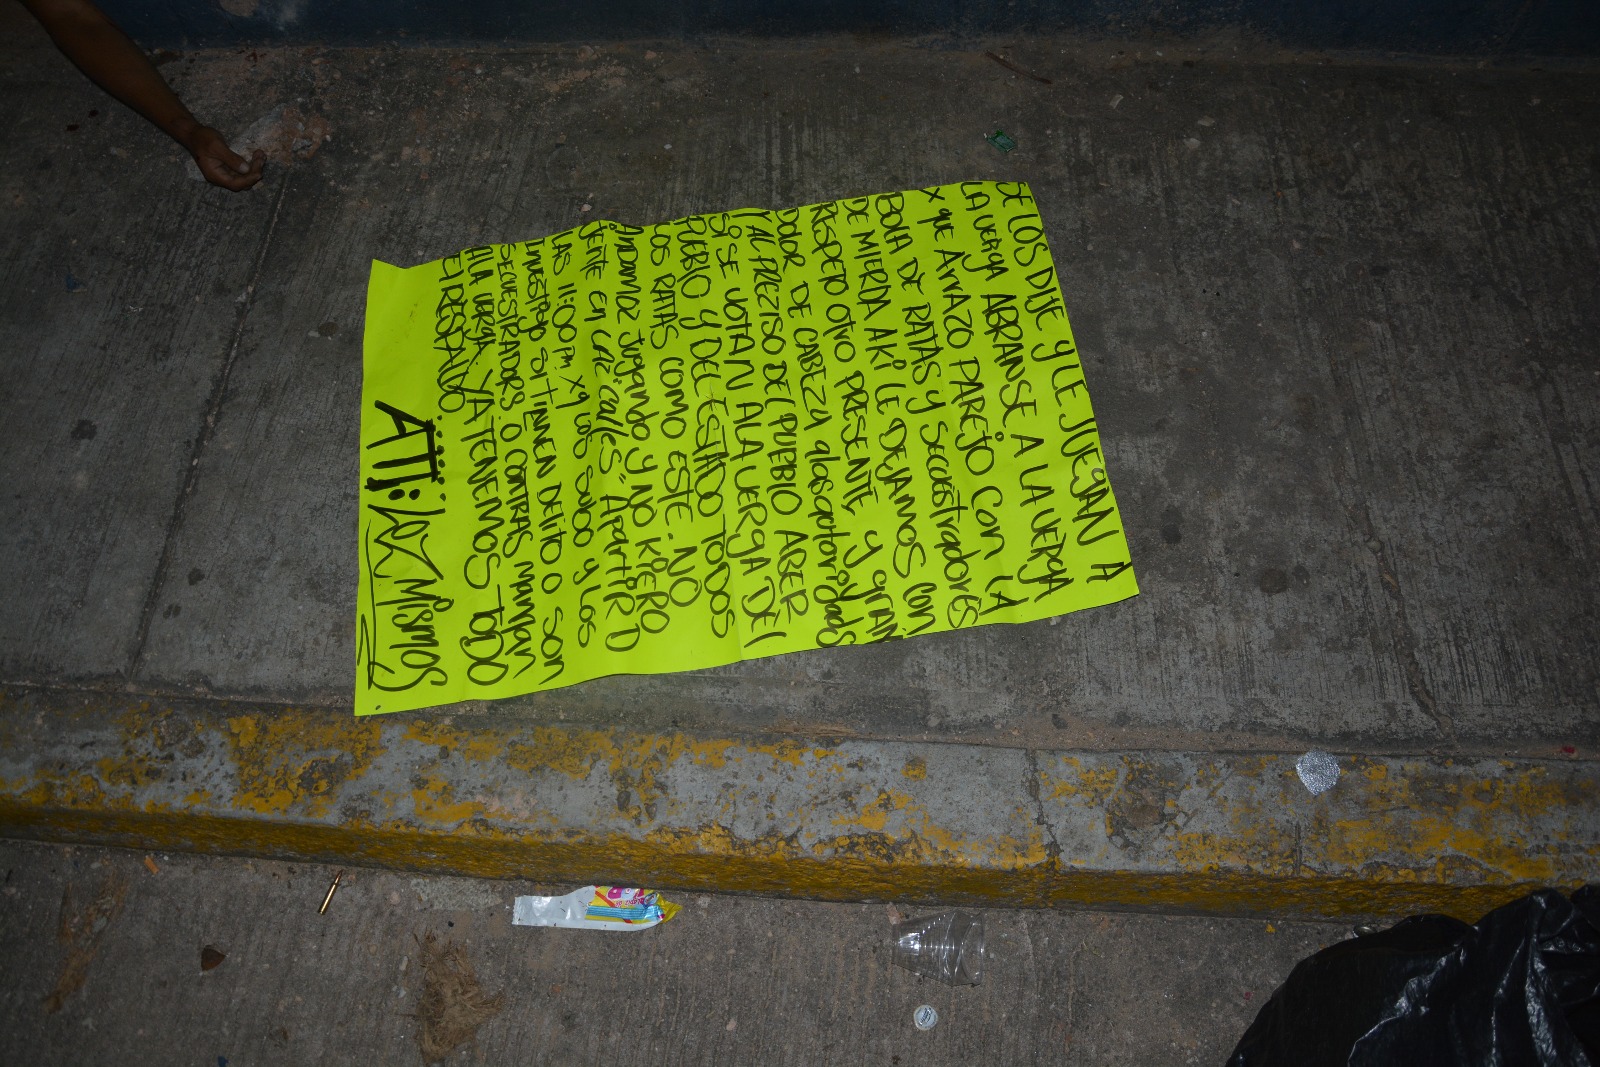 SE LOS DIJE Y LE JUEGAN A
LA VERGA ABRANSE A LA VERGA
X que AVVAZO PAREJO CON LA
BOLA DE RATAS Y SECUESTRADORES
DE MIERDA AKI LE DEJAMOS CON
RESPETO OTVO PRESENTE, Y GRAN
DOLOR DE CABEZA alasautorydads
Y AL PREZISO DEL PUEBLO ABER
SI SE VOTAN ALA VERGA DEL
PUEBLO Y DEL ESTADO TODOS
LOS RATAS COMO ESTE. NO
ANDAMOZ JUGANDO Y NO KIERO
JENTE EN LAZ "calles" APARTIR D
LAS 11:00 PM. X9 LOS SUDO Y LOS
INVESTIGO SI TIENEN DELITO O SON
SECUESTRADORS O CONTRAS MAMAN
ALA VERGA. YA TENEMOS TODO
El RESPALDO
ATT: LOZ MISMOS